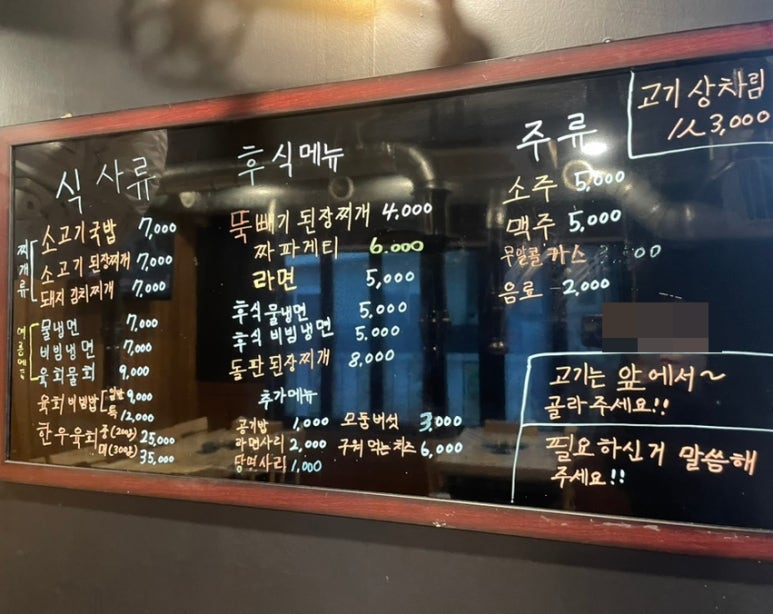 식사류
찌개류
소고기국밥 7,000
소고기 된장찌개 7,000
돼지 김치찌개 7,000
물냉면 7,000
비빔냉면 7,000
육회물회 9,000
육회비빔밥 일반 9,000
특 12,000
한우육회 중(200g) 25,000
대(300g) 35,000
후식메뉴
뚝빼기 된장찌개 4,000
짜파게티 6,000
라면 5,000
후식 물냉면 5,000
후식 비빔냉면 5,000
돌판된장찌개 8,000
추가메뉴
공기밥 1,000
라면사리 2,000
당면사리 1,000
모듬버섯 3,000
구워 먹는 치즈 6,000
주류
소주 5,000
맥주 5,000
무알콜 카스 00
음료 2,000
고기 상차림
1人 3,000
고기는 앞에서~
골라주세요!!
필요하신거 말씀해
주세요!!